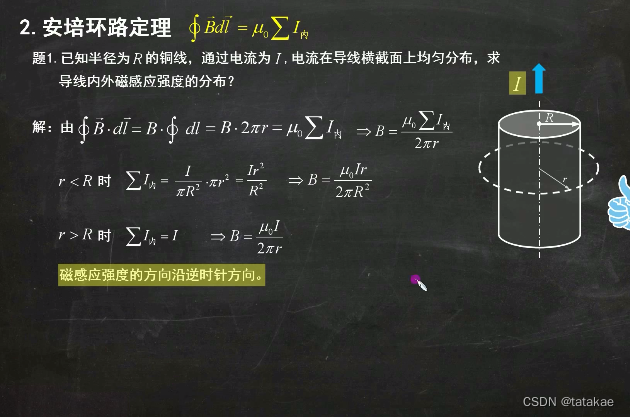 2.安培环路定理 ∮B⃗dl⃗ = μ₀∑I内
题1.已知半径为R的铜线，通过电流为I,电流在导线横截面上均匀分布，求
导线内外磁感应强度的分布？
解：由∮B⃗·dl⃗ = B·∮dl = B·2πr = μ₀∑I内 ⇒ B = μ₀∑I内 / 2πr
r<R 时 ∑I内 = I/πR² ·πr² = Ir²/R² ⇒ B = μ₀Ir / 2πR²
r>R 时 ∑I内 = I ⇒ B = μ₀I / 2πr
磁感应强度的方向沿逆时针方向。
I
R
r
CSDN @tatakae